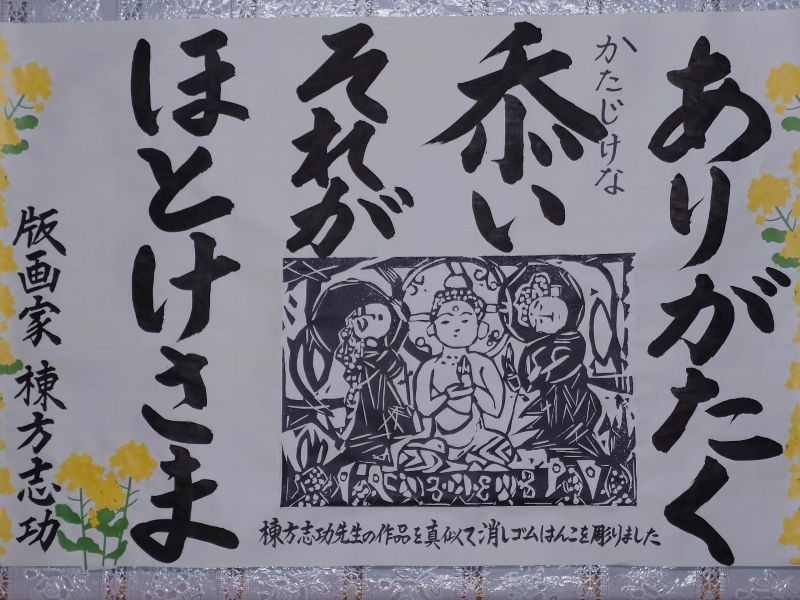 ありがたく
かたじけな
忝い
それが
ほとけさま
版画家 棟方志功
棟方志功先生の作品を真似て消しゴムはんこを彫りました